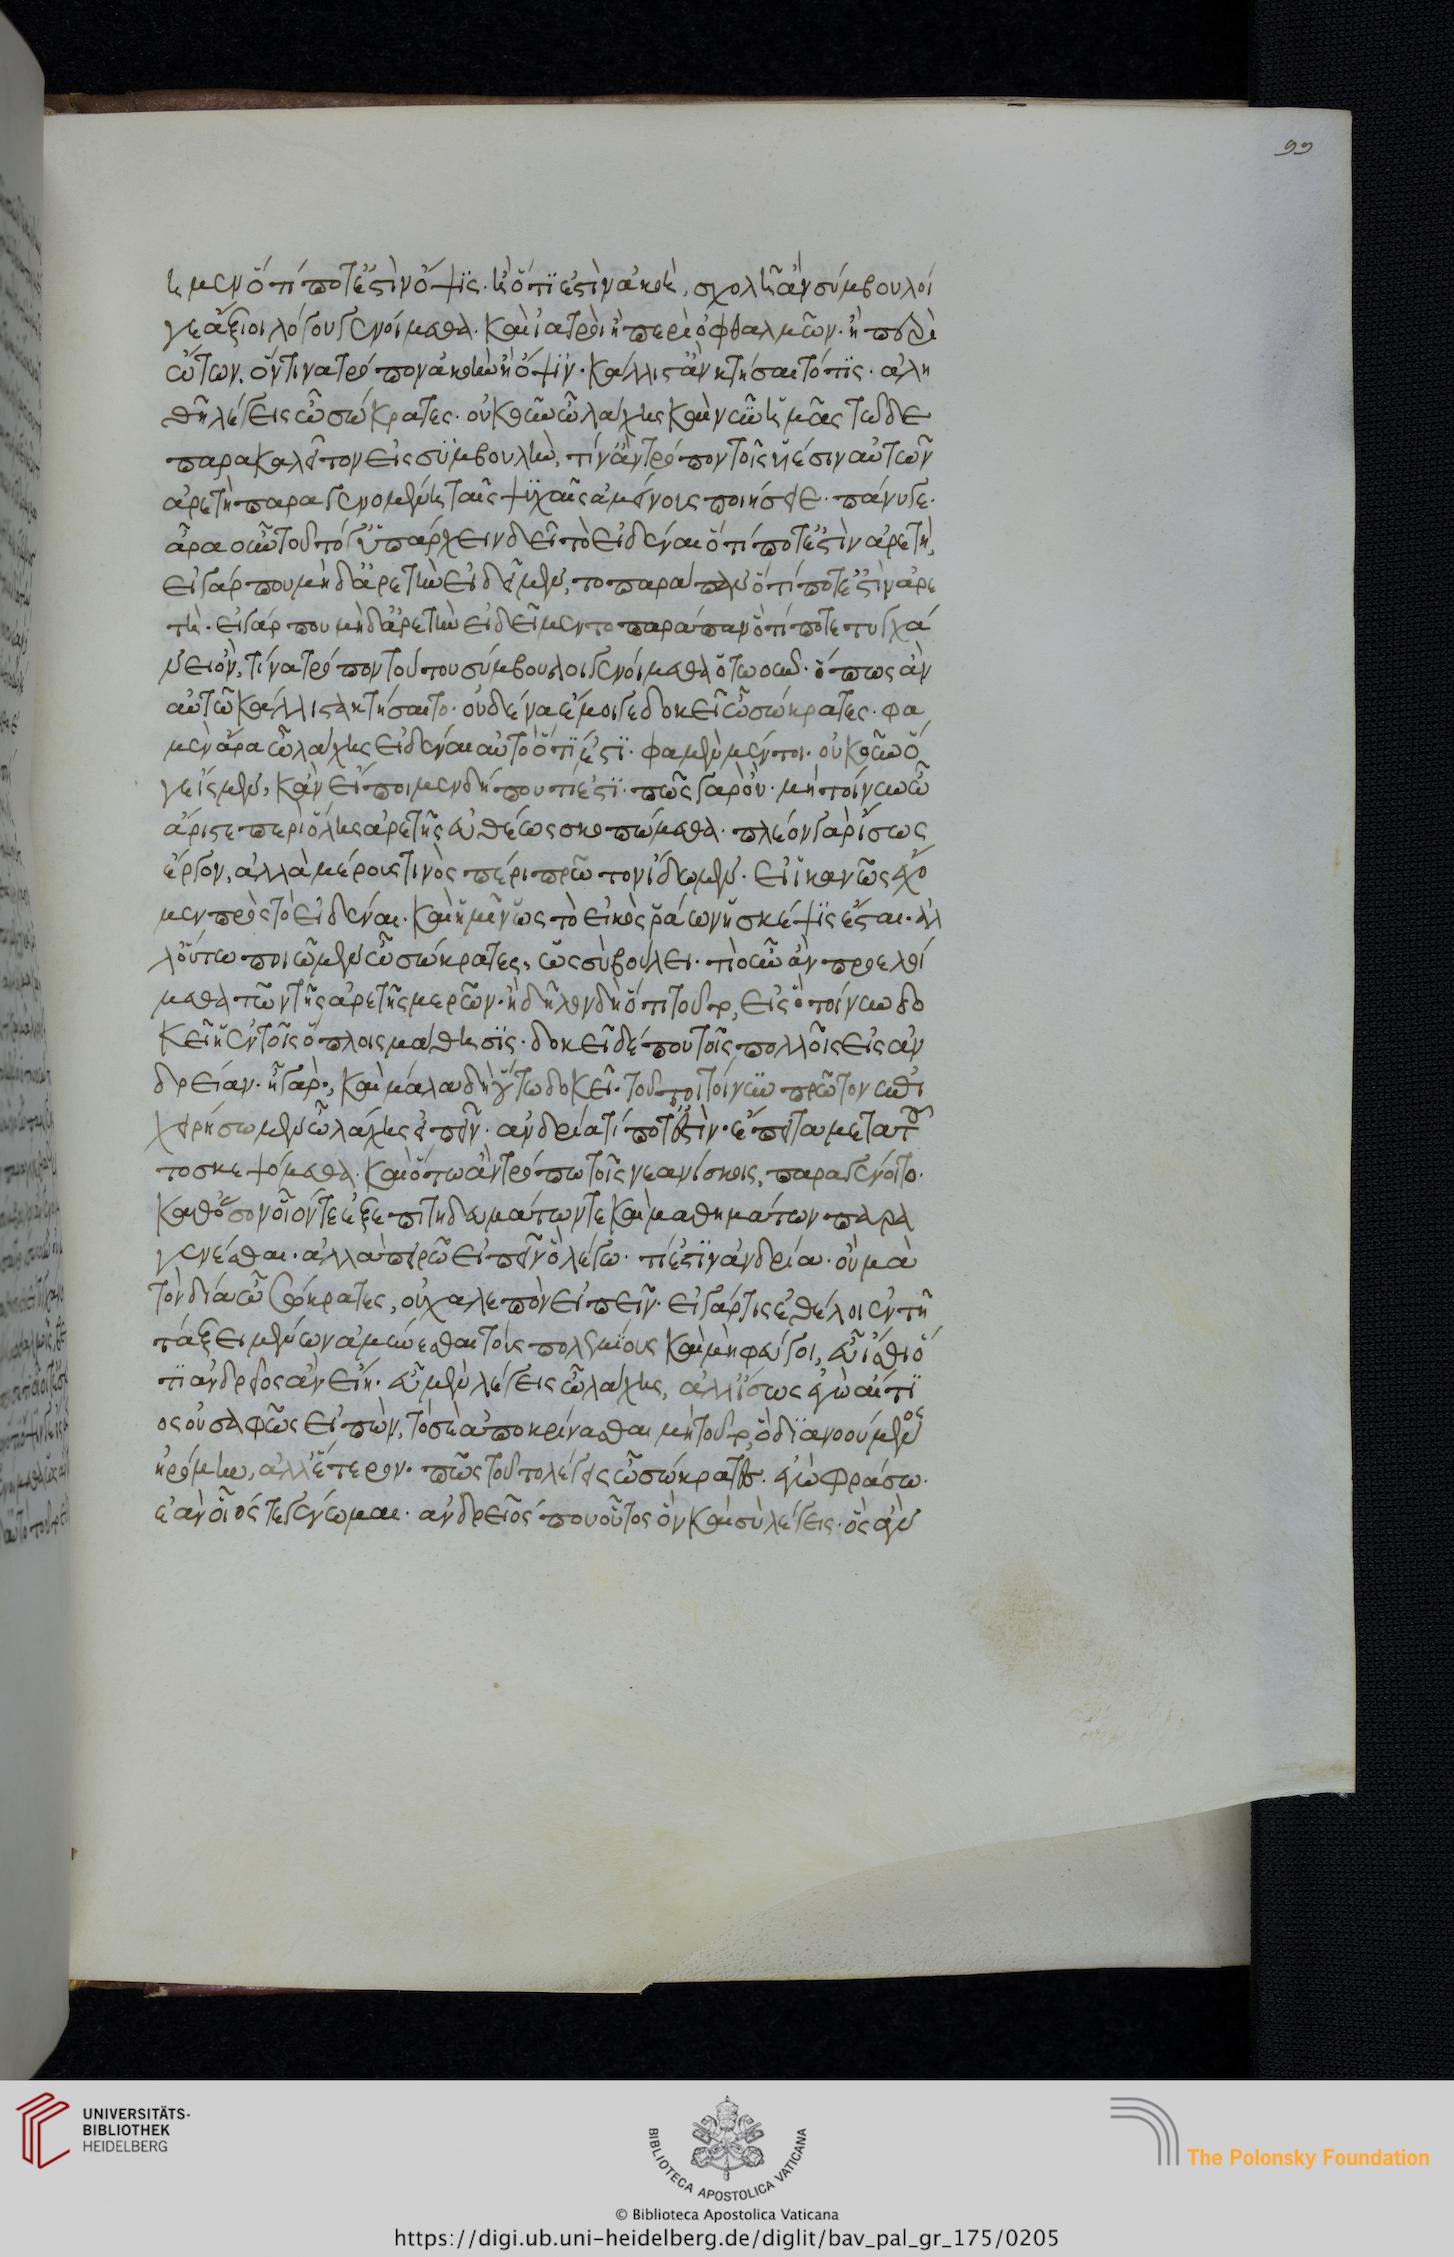 η μεν ὅτί ποτέ ἔστὶν ὄψϊς. ἢ ὅτϊ ἐστὶν ἀκοὴ, σχολῆ ἂν σύμβουλοί
γε ἄξιοι λόγου γενοίμεθα. καὶ ἰατροὶ ἢ περὶ ὀφθαλμῶν. ἢ περὶ
ὤτων. ὅντινα τρόπον ἀκοὴν ἢ ὄψϊν. κάλλιστ' ἂν κτήσαιτό τϊς. ἀλη
θῆ λέγεις ὦ σώκρατες. οὐκοῦν ὦ λάχης καὶ νῦν ἡμᾶς τώδε
παρακαλεῖτον εἰς συμβουλὴν, τίν' ἂν τρόπον τοῖς ὑέσιν αὐτῶν
ἀρετὴ παραγενομένη ταῖς ψυχαῖς ἀμείνους ποιήσειε. πάνυ γε.
ἆρα οὖν τοῦτό γ' ὑπάρχειν δεῖ τὸ εἰδέναι ὅ τί ποτέ ἔστὶν ἀρετὴ,
εἰ γάρ που μὴ δ' ἀρετὴν εἰδεῖμεν, το παράπαν ὅτί ποτέ ἔστὶν ἀρε
τὴ. εἰ γάρ που μὴ δ' ἀρετὴν εἰδεῖμεν το παράπαν ὅτί ποτε τυγχά
νει ὂν, τίνα τρόπον τούτου σύμβουλοι γενοίμεθα ὅτωοῦν. ὅπως ἂν
αὐτῶ κάλλιστα κτήσαιτο. οὐδένα ἔμοιγε δοκεῖ ὦ σώκρατες. φα
μὲν ἄρα ὦ λάχης εἰδέναι αὐτὸ ὅτϊ ἔστϊ. φαμὲν μέντοι. οὐκοῦν ὅ
γε ἴσμεν, κἂν εἴποιμεν δήπου τί ἐστϊ. πῶς γὰρ οὔ. μὴ τοίνυν ὦ
ἄριστε περὶ ὅλης ἀρετῆς εὐθέως σκοπώμεθα. πλέον γὰρ ἴσως
ἔργον, ἀλλὰ μέρους τινὸς πέρι πρῶτον ἴδωμεν. εἰ ἱκανῶς ἔχο
μεν πρὸς τὸ εἰδέναι. καὶ ἡμῖν ὡς τὸ εἰκὸς ῥάων ἡ σκέψϊς ἔσται. ἀλ
λ' οὕτω ποιῶμεν ὦ σώκρατες, ὡς σὺ βούλει. τί οὖν ἂν προελοί
μεθα τῶν τῆς ἀρετῆς μερῶν. ἢ δῆλον δὴ ὅτι τοῦτο, εἰς ὃ τοίνυν δο
κεῖ ἡ ἐν τοῖς ὅπλοις μάθησϊς. δοκεῖ δέ που τοῖς πολλοῖς εἰς ἀν
δρείαν. ἦ γάρ., καὶ μάλα δὴ οὕτω δοκεῖ. τοῦτο τοίνυν πρῶτον ἐπι
χειρήσωμεν ὦ λάχης εἰπεῖν. ἀνδρία τί ποτ' ἐστὶν. ἔπειτα μετατοῦ
το σκεψόμεθα. καὶ ὅτω ἂν τρόπω τοῖς νεανίσκοις, παραγένοιτο.
καθόσον οἷόν τε ἐξ ἐπιτηδευμάτων τε καὶ μαθημάτων παρα
γενέσθαι. ἀλλὰ πειρῶ εἰπεῖν ὃ λέγω. τί ἐστϊν ἀνδρία. οὐ μὰ
τὸν δία ὦ σώκρατες, οὐ χαλεπὸν εἰπεῖν. εἰ γάρ τις ἐθέλοι ἐν τῆ
τάξει μένων ἀμύνεσθαι τοὺς πολεμίους καὶ μὴ φεύγοι, εὖ ἴσθι ὅ
τϊ ἀνδρεῖος ἂν εἴη. εὖ μὲν λέγεις ὦ λάχης, ἀλλ' ἴσως ἐγὼ αἴτϊ
ος οὐ σαφῶς εἰπὼν, τό σε ἀποκρίνασθαι μὴ τοῦτο, ὃ διανοούμενος
ἠρόμην, ἀλλ' ἕτερον. πῶς τοῦτο λέγεις ὦ σώκρατες. ἐγὼ φράσω.
ἐὰν οἷός τε γένωμαι. ἀνδρεῖός που οὗτος ὃν καὶ σὺ λέγεις. ὃς ἂν
99
UNIVERSITÄTS-
BIBLIOTHEK
HEIDELBERG
BIBLIOTECA APOSTOLICA VATICANA
The Polonsky Foundation
© Biblioteca Apostolica Vaticana
https://digi.ub.uni-heidelberg.de/diglit/bav_pal_gr_175/0205